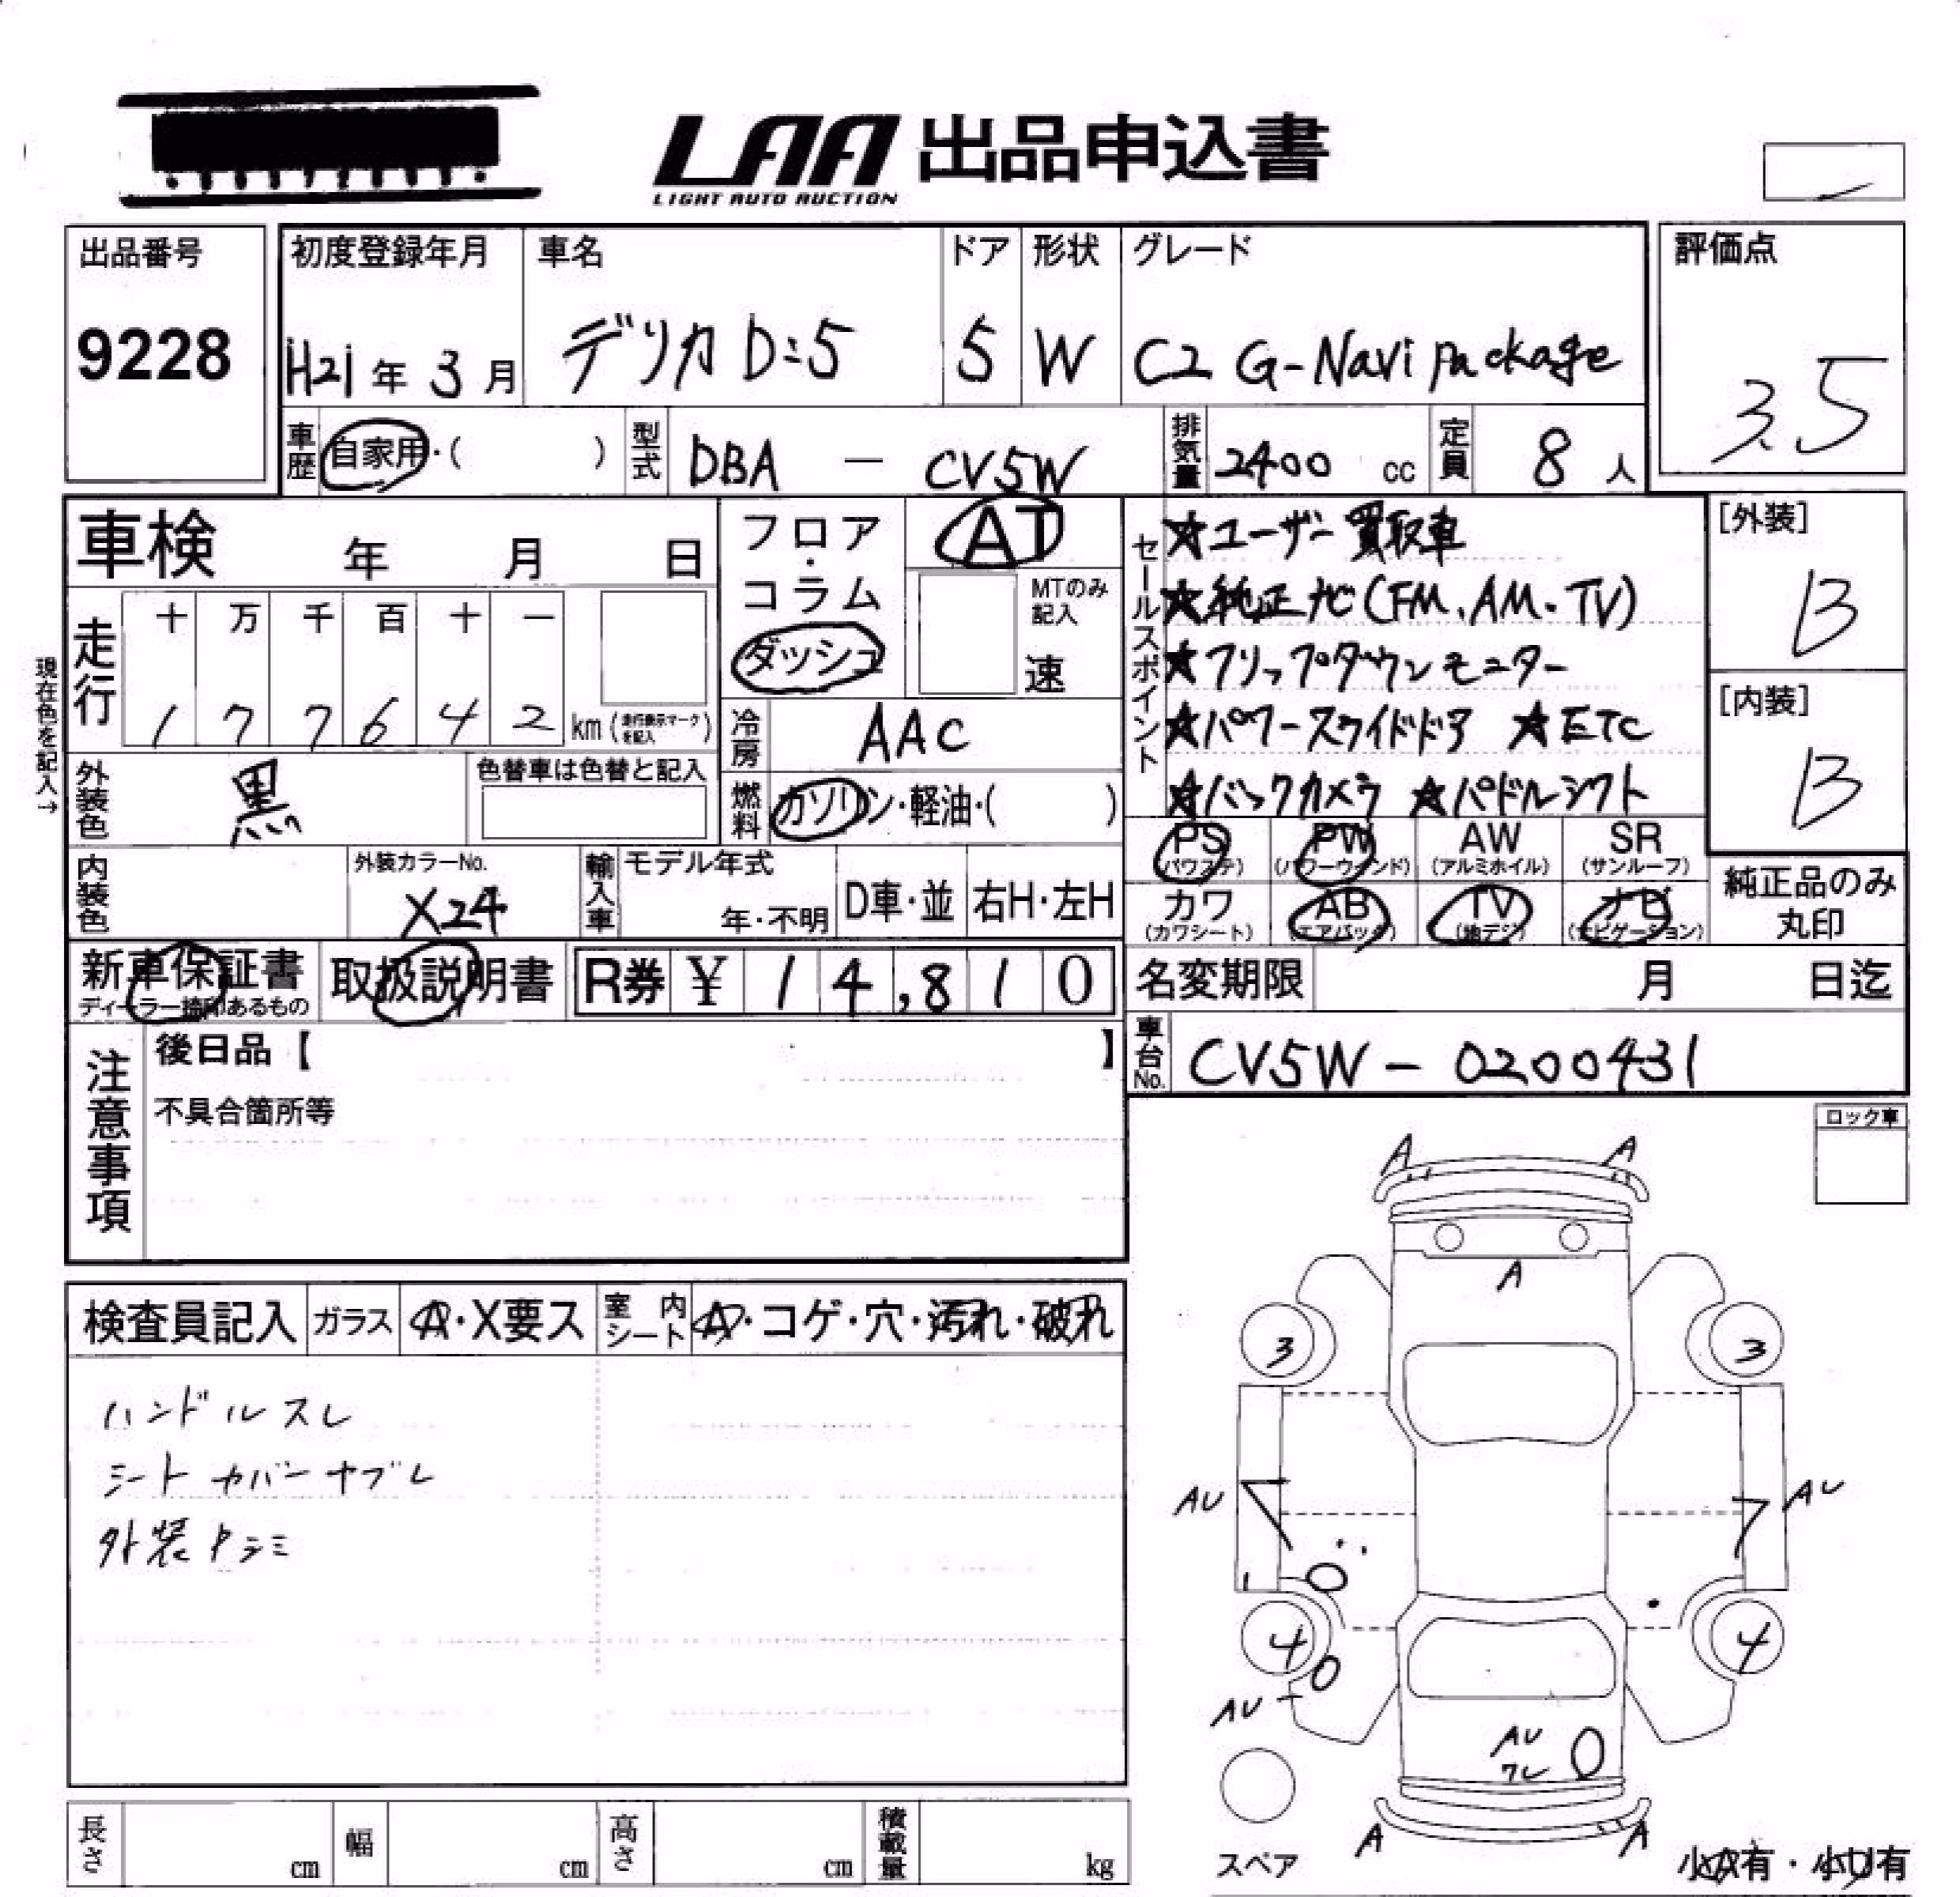 LAA 出品申込書
LIGHT AUTO AUCTION
出品番号
9228
初度登録年月
H21年 3月
車名
デリカ D:5
ドア
5
形状
W
グレード
C2 G-Navi Package
評価点
3.5
車歴 自家用・( )
型式 DBA - CV5W
排気量 2400 cc
定員 8 人
車検 年 月 日
フロア・コラム
ダッシュ
AT
MTのみ記入
速
セールスポイント
★ユーザー買取車
★純正ナビ(FM.AM.TV)
★フリップダウンモニター
★パワースライドドア ★ETC
★バックカメラ ★パドルシフト
[外装]
B
[内装]
B
現在色を記入→
走行
十 万 千 百 十 一
1 7 7 6 4 2 km (走行表示マークを記入)
冷房 AAC
外装色 黒
色替車は色替と記入
燃料 ガソリン・軽油・( )
PS (パワステ)
PW (パワーウインド)
AW (アルミホイル)
SR (サンルーフ)
カワ (カワシート)
AB (エアバッグ)
TV (地デジ)
ナビ (ナビゲーション)
純正品のみ
丸印
内装色
外装カラーNo.
X24
輸入車
モデル年式
年・不明
D車・並
右H・左H
新車保証書
ディーラー捺印あるもの
取扱説明書
R券 ¥ 14,810
名変期限 月 日迄
車台No. CV5W - 0200431
注意事項
後日品【 】
不具合箇所等
ロック車
検査員記入
ガラス A・X要ス
室内シート A・コゲ・穴・汚れ・破れ
ハンドルスレ
シートカバーヤブレ
外装キズ
A A
A
3 3
AU AU
4 4
AU
AU
ワレ
A A
スペア
小A有・小U有
長さ cm
幅 cm
高さ cm
積載量 kg